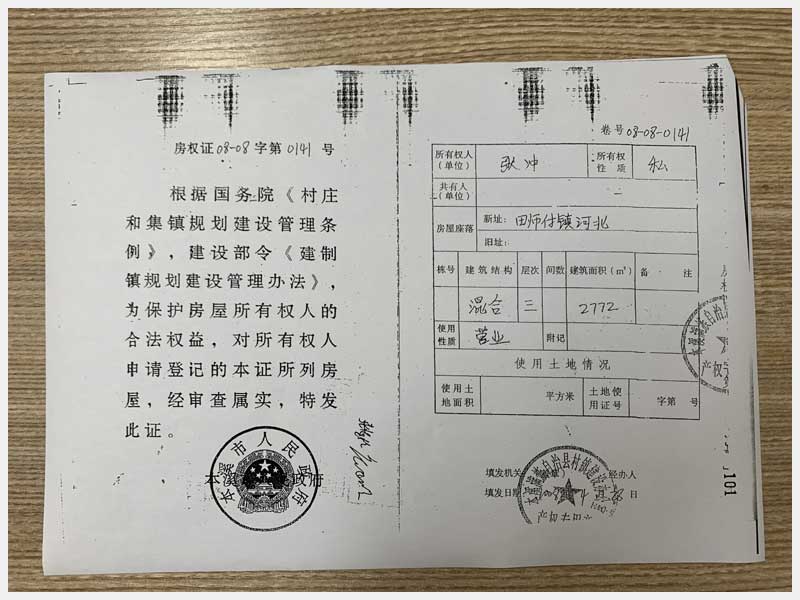 房权证08-08字第0141号
根据国务院《村庄
和集镇规划建设管理条
例》，建设部令《建制
镇规划建设管理办法》，
为保护房屋所有权人的
合法权益，对所有权人
申请登记的本证所列房
屋，经审查属实，特发
此证。
本溪市人民政府
卷号08-08-0141
所有权人（单位） 耿冲 所有权性质 私
共有人（单位）
房屋座落 新址：田师付镇河北
旧址：
栋号 建筑结构 层次 间数 建筑面积（m²） 备注
混合 三 2772
使用性质 营业 附记
使用土地情况
使用土地面积 平方米 土地使用证号 字第 号
填发机关 经办人
填发日期 日
本溪满族自治县村镇建设
本溪满族自治
产权
101